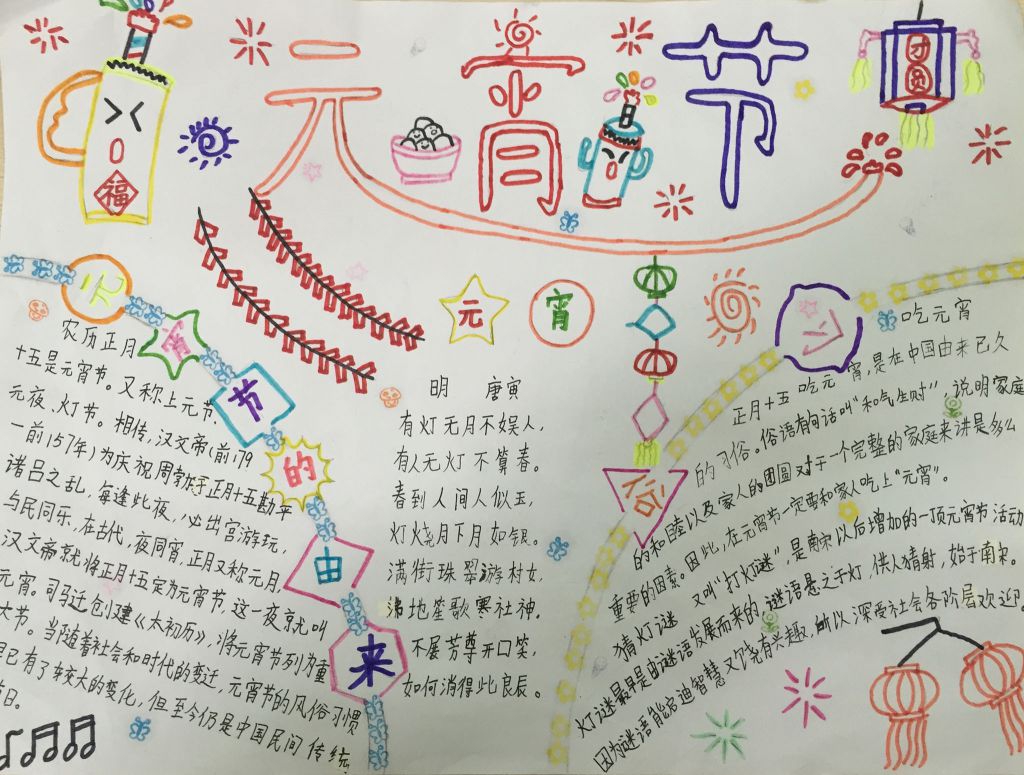 元宵节
福
团
圆
元宵
元宵节的由来
农历正月
十五是元宵节。又称上元节,
元夜、灯节。相传,汉文帝(前179
一前157年)为庆祝周勃于正月十五勘平
诸吕之乱,每逢此夜,必出宫游玩,
与民同乐,在古代,夜同宵,正月又称元月,
汉文帝就将正月十五定为元宵节,这一夜京就叫
元宵。司马迁创建《太初历》,将元宵节列为重
大节。当随着社会和时代的变迁,元宵节的风俗习惯
已有了较大的变化,但至今仍是中国民间传统
节日。
明 唐寅
有灯无月不娱人,
有人无灯不算春。
春到人间人似玉,
灯烧月下月如银。
满街珠翠游村女,
沸地笙歌赛社神。
不展芳尊开口笑,
如何消得此良辰。
习俗
吃元宵
正月十五吃元宵,是在中国由来已久
的习俗。俗语有句话叫"和气生财",说明家庭
的和睦以及家人的团圆对于一个完整的家庭来讲是多么
重要的因素。因此,在元宵节一定要和家人吃上"元宵"。
猜灯谜 又叫"打灯谜",是南宋以后增加的一项元宵节活动
灯谜最早是由谜语发展而来的,谜语悬之于灯,供人猜射,始于南宋。
因为谜语能启迪智慧又饶有兴趣,所以,深受社会各阶层欢迎。